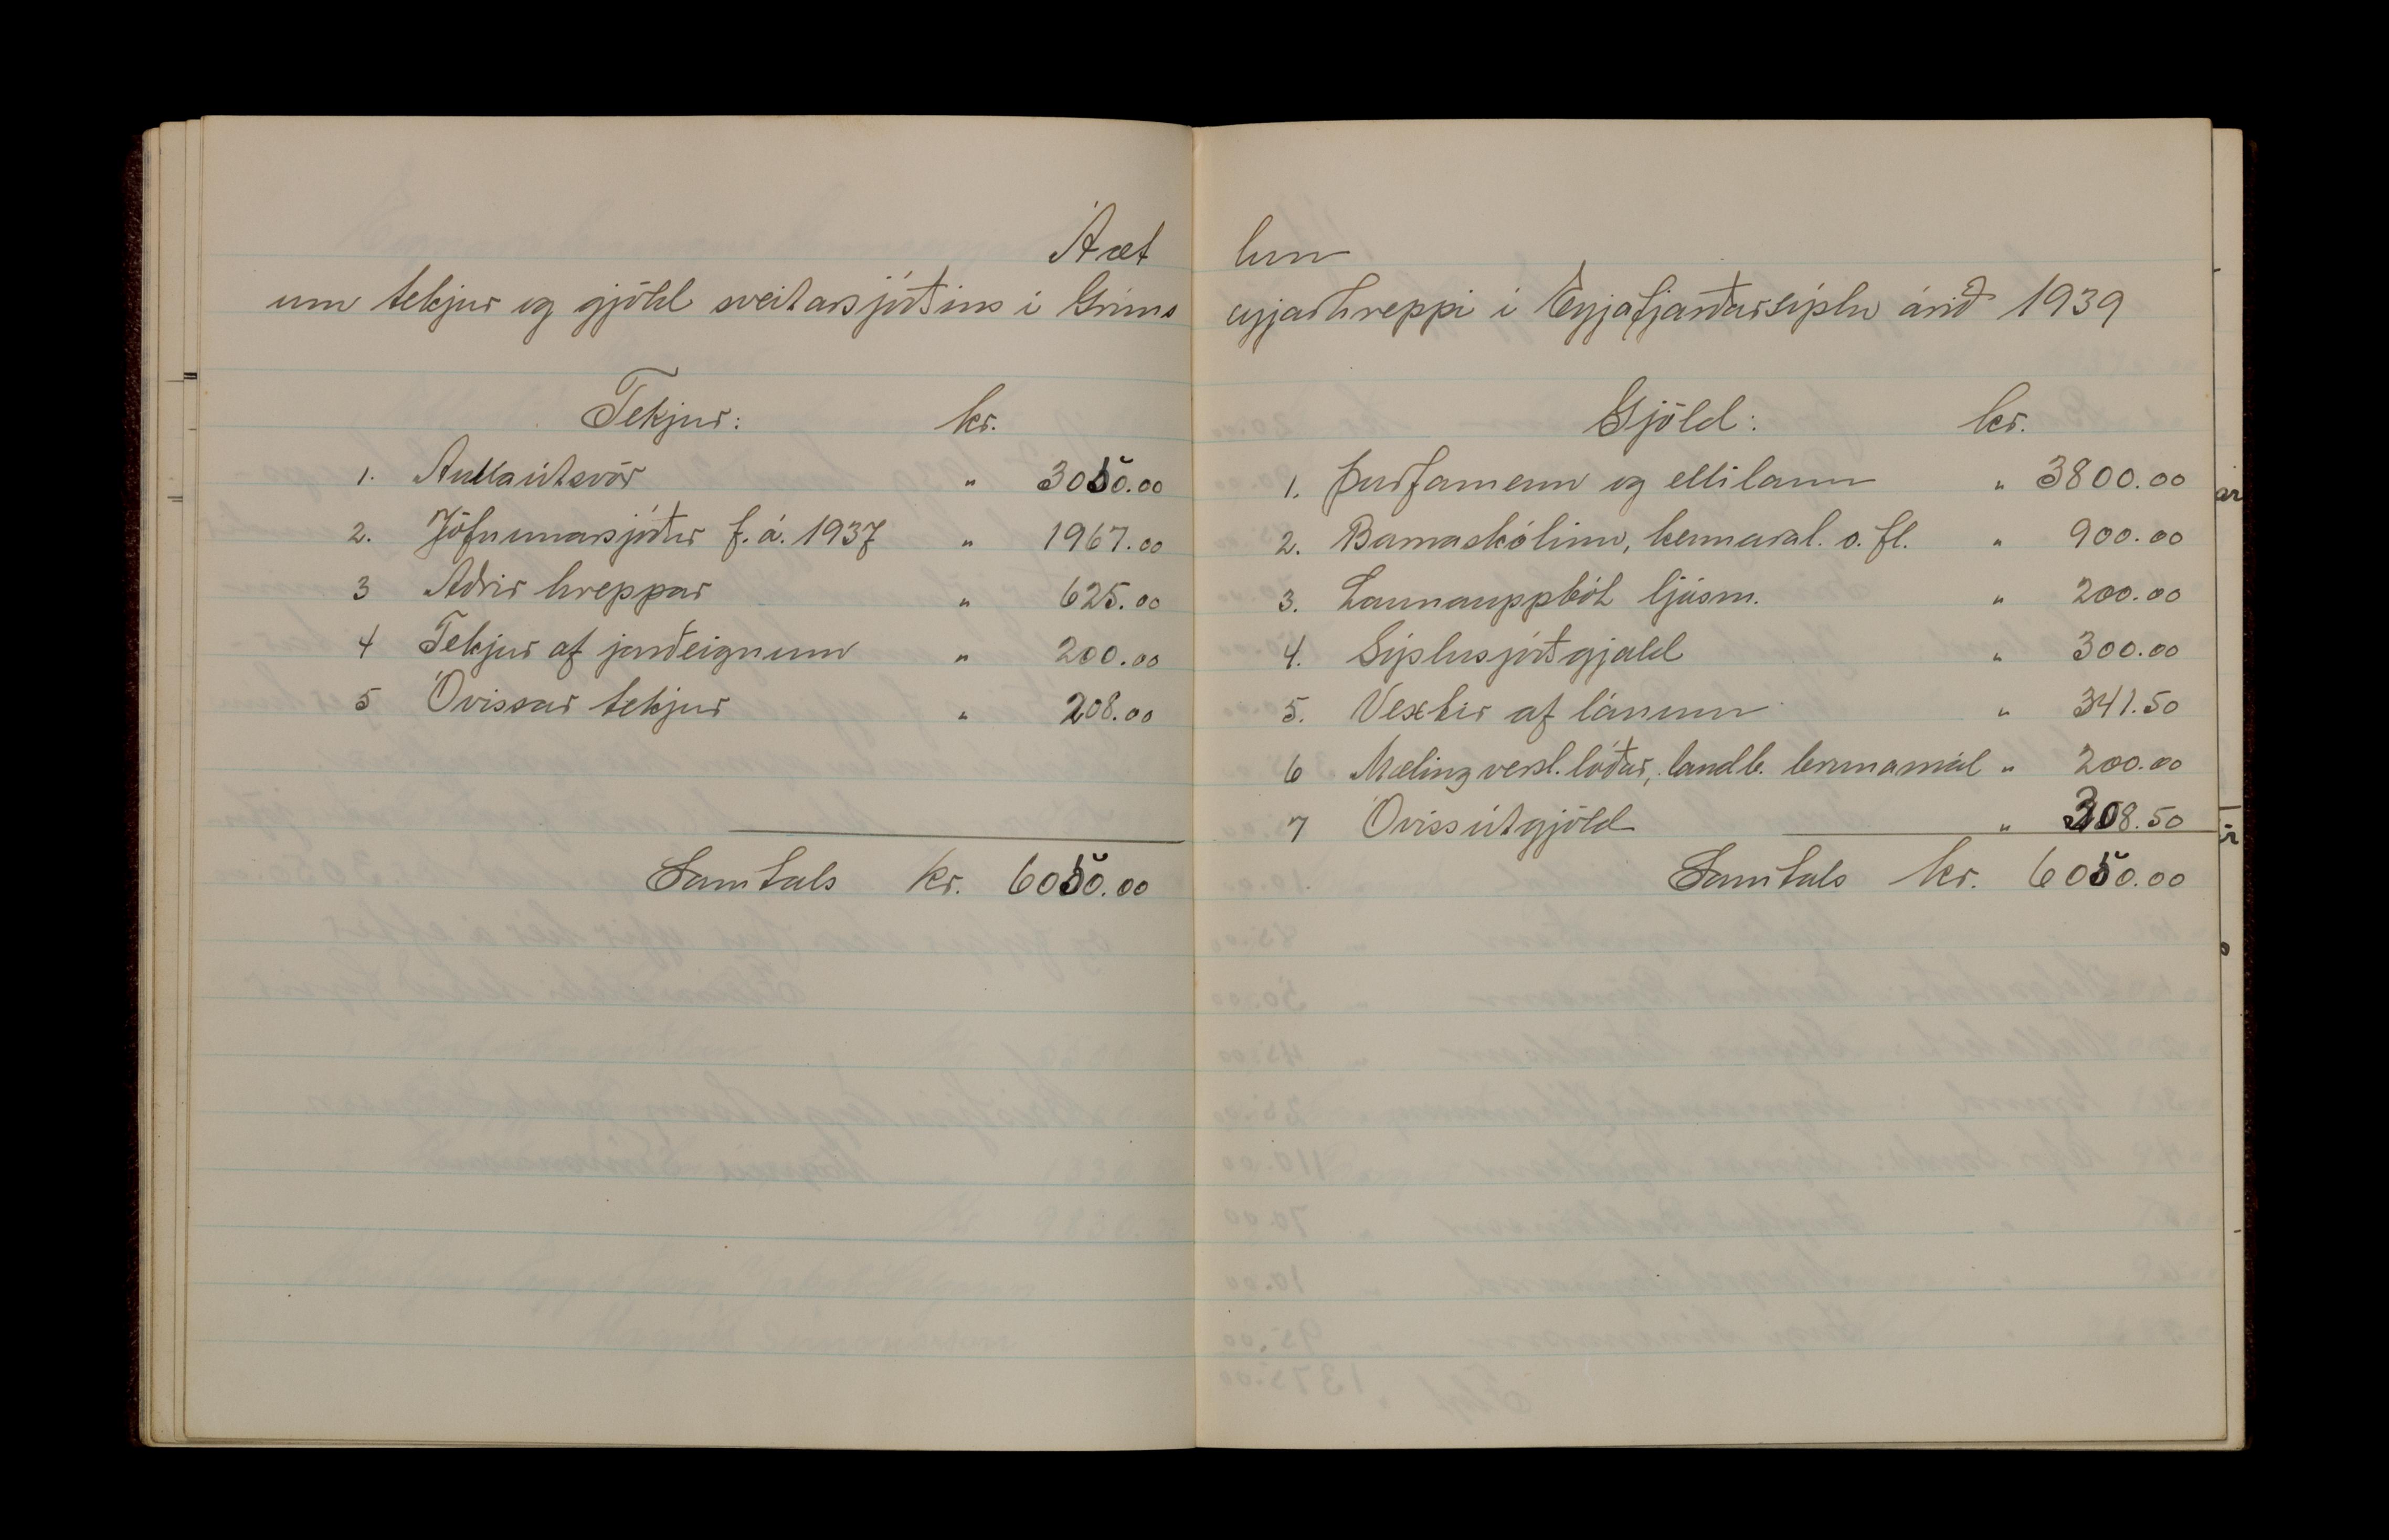 Áæt lun
um tekjur og gjöld sveitarsjóðsins í Gríms eyjarhreppi í Eyjafjarðarsýslu árið 1939
Tekjur: kr.
1. Aukaútsvör " 3050.00
2. Jöfnunarsjóður f. á. 1937 " 1967.00
3 Aðrir hreppar " 625.00
4 Tekjur af jarðeignum " 200.00
5 Óvissar tekjur " 208.00
Samtals kr. 6050.00
Gjöld: kr.
1. Þurfamenn og ellilaun " 3800.00
2. Barnaskólinn, kennaral. o. fl. " 900.00
3. Launauppbót ljósm. " 200.00
4. Sýslusjóðgjald " 300.00
5. Vextir af lánum " 341.50
6 Mæling versl. lóðar, landb. brunamál " 200.00
7 Óviss útgjöld " 308.50
Samtals kr. 6050.00